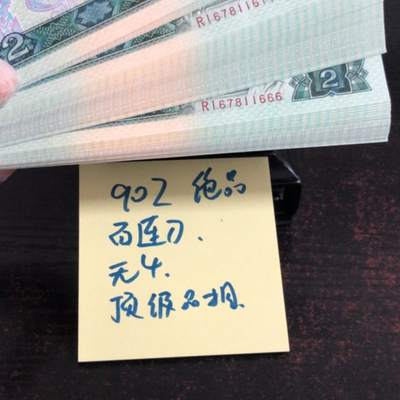 2
RI67811611
RI67811666
2
902 绝品
百连刀、
无4、
顶级品相